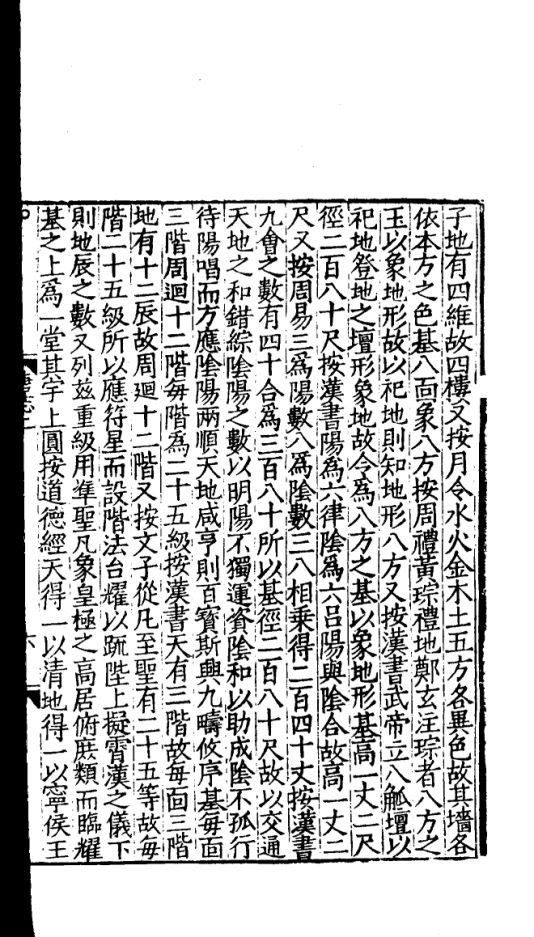 子地有四維故四樓又按月令水火金木土五方各異色故其墻各
依本方之色基八面象八方按周禮黃琮禮地鄭玄注琮者八方之
玉以象地形故以祀地則知地形八方又按漢書武帝立八觚壇以
祀地登地之壇形象地故令為八方之基以象地形基高一丈二尺
徑二百八十尺按漢書陽為六律陰為六呂陽與陰合故高一丈二
尺又按周易三為陽數八為陰數三八相乗得二百四十丈按漢書
九會之數有四十合為三百八十所以基徑二百八十尺故以交通
天地之和錯綜陰陽之數以明陽不獨運資陰和以助成陰不孤行
待陽唱而方應陰陽兩順天地咸亨則百寶斯興九疇攸序基每面
三階周迴十二階每階為二十五級按漢書天有三階故每面三階
地有十二辰故周迴十二階又按文子從凡至聖有二十五等故每
階二十五級所以應符星而設階法台耀以疏陛上擬霄漢之儀下
則地辰之數又列茲重級用準聖凡象皇極之高居俯庶類而臨耀
基之上為一堂其宇上圓按道德經天得一以清地得一以寧侯王
志二
六